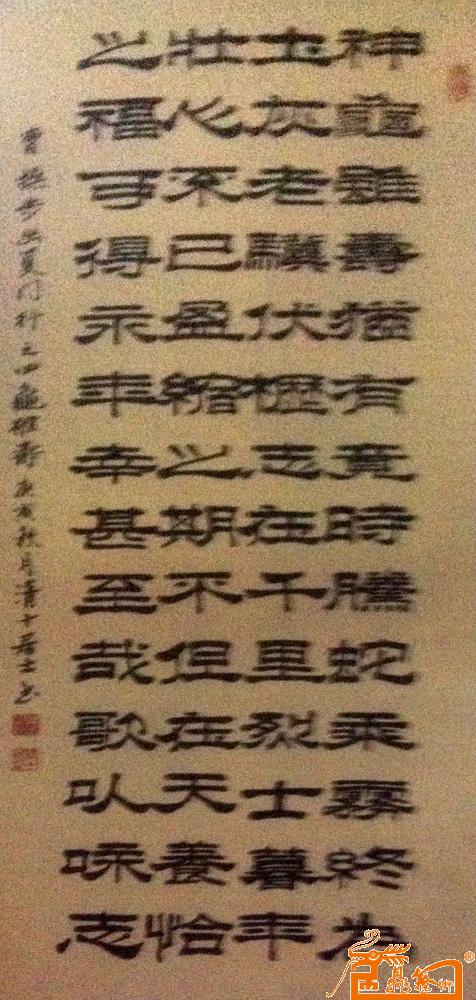 神龜雖壽猶有竟時騰蛇乘霧終為
土灰老驥伏櫪志在千里烈士暮年
壯心不已盈縮之期不但在天養怡
之福可得永年幸甚至哉歌以咏志
曹操步出夏门行之四龜雖壽庚寅秋月清十居士书